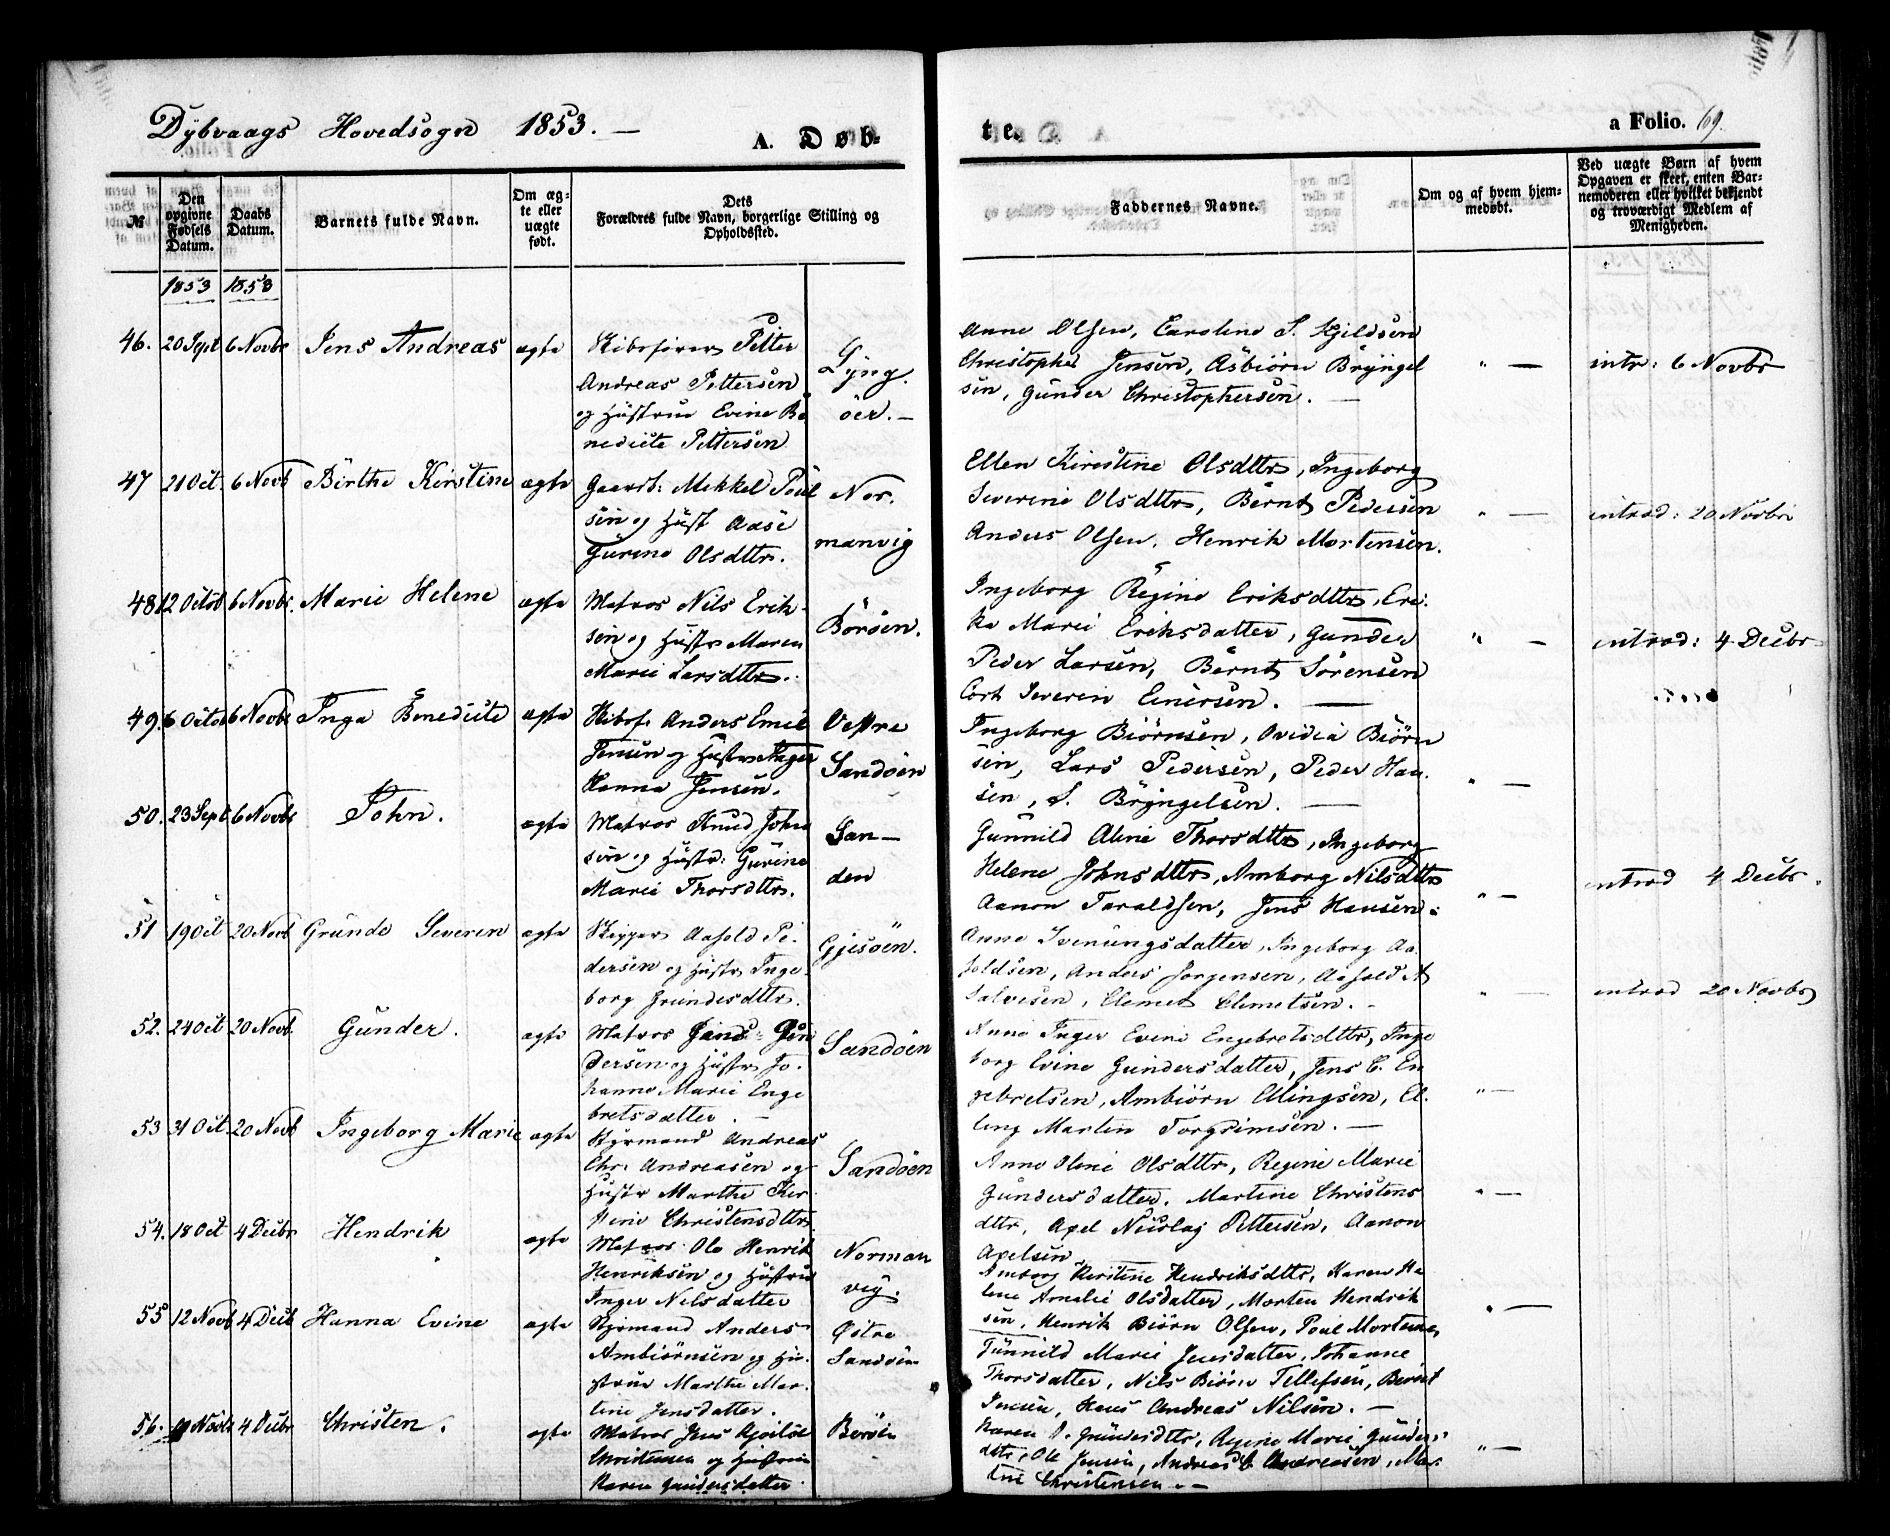 Dybvaags Hovedsogn 1853. —
A. Døb-
te.
a Folio. 69.
№
Den opgivne Fødsels Datum.
Daabs Datum.
Barnets fulde Navn.
Om ægte eller uægte født.
Dets Forældres fulde Navn, borgerlige Stilling og Opholdssted.
Faddernes Navne.
Om og af hvem hjemmedøbt.
Ved uægte Børn af hvem Opgaven er skeet, enten Barnemoderen eller hvilket bekjendt og troværdigt Medlem af Menigheden.
1853 1853
46. 20 Sept 6 Novbr Jens Andreas ægte
Petter
Andreas Pettersen
og Hustrue Evine Be
nedicte Pettersen
Lyng.
öer. —
Anne Olsen, Caroline S. Kjeldsen
Christopher Jensen, Asbiörn Bryngel
sen, Gunder Christophersen. —
" —
intr: 6 Novbr
47 21 Oct. 6 Novb Birthe Kirstine ægte
Gaardb: Mekkel Poul
sen og Hust Aase
Gurine Olsdttr.
Nor.
manvig
Ellen Kirestine Olsdttr, Ingeborg
Severine Olsdttr, Bernt Pedersen
Anders Olsen, Henrik Mortensen.
" —
introd: 20 Novbr
48 12 Octob 6 Novbr. Marie Helene ægte
Matros Nils Erik-
sen og Hustr Maren
Marie Larsdttr.
Böröen.
Ingeborg Regine Eriksdttr, Eri-
ka Marie Eriksdatter, Gunder
Peder Larsen, Bernt Sörensen
Cort Severin Einersen. —
" —
introd: 4 Decbr
49. 6 Octob 6 Novbr Inga Benedicte ægte
Anders Emil
Jensen og Hustrue Inger
Hanna Jensen.
Vestre
Sandöen
Ingeborg Biörnsen, Ovidia Biörn
sen, Lars Pedersen, Peder Han-
sen, S. Bryngelsen. —
" —
50. 23 Sept 6 Novbr John. ægte
Matros Knud John
sen og Hustr: Gurine
Marie Thorsdttr.
San—
den
Gunnild Aline Thorsdttr, Ingeborg
Helene Johnsdttr, Amborg Nilsdttr
Aanon Taraldsen, Jens Hansen.
" —
introd 4 Decbr.
51 19 Oct 20 Novb Grunde Severin ægte
Skipper Aasold Pe-
dersen og Hustr Inge-
borg Grundesdttr.
Gjesöen.
Anne Ivenungsdatter, Ingeborg Aa-
soldsen, Anders Jorgensen, Aasold A
Salvesen, Clemet Clemetsen. -
" —
introd 20 Novbr
52. 24 Oct 20 Novb. Gunder. ægte
Matros Jens Gun
dersen og Hustr Jo-
hanne Marie Enge
bretsdatter. —
Sandöen
Anne Inger Evine Engebretsdttr, Inge
borg Evine Gundersdatter, Jens C. En
gebretsen, Ambiörn Ellingsen, El-
ling Martin Torgrimsen. —
" —
53 31 Oct. 20 Novb Ingeborg Marie ægte
Styrmand Andreas
Chr. Andreasen og
Hustr Marthe Kir
stine Christensdttr.
Sandöen
Anne Oline Olsdttr, Regine Marie
Gundersdatter, Martine Christens
dttr, Axel Nicolaj Pettersen, Aanon
Axelsen
" —
54. 18 Oct 4 Decbr Hendrik ægte
Matros Ole Henrik
Henriksen og Hustrue
Inger Nilsdatter
Norman
vig.
Amborg Kirstine Hendriksdttr, Karen He
lene Amalie Olsdatter, Morten Hendrik
sen, Henrik Biörn Olsen, Poul Mortensen
" —
55 12 Novb 4 Decb Hanna Evine ægte
Styrmand Anders
Ambiörnsen og Hu-
strue Marthe Mar-
tine Jensdatter.
Østre
Sandöen
Gunnild Marie Jensdatter, Johanne
Thorsdatter, Nils Biörn Tellefsen, Bernt
Jensen, Hans Andreas Nilsen. —
56. Novbr 4 Decbr Christen. ægte
Matros Jens
Christensen og Hustrue
Karen Gundersdatter
Böröen
Karen Gundersdttr, Regine Marie Gunders-
dttr, Ole Jensen, Andreas C Andreasen, Mar
tin Christensen. —
" —